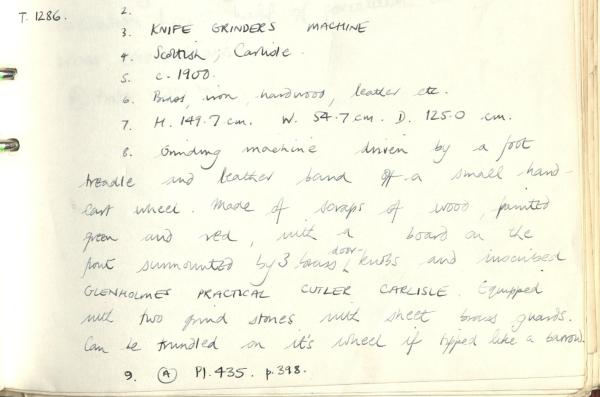 T. 1286.
2.
3. KNIFE GRINDERS MACHINE
4. Scottish, Carlisle.
5. c. 1900.
6. Brass, iron, hardwood, leather etc.
7. H. 149.7 cm. W. 54.7 cm. D. 125.0 cm.
8. Grinding machine driven by a foot
treadle and leather band off a small hand-
cart wheel. Made of scraps of wood, painted
green and red, with a board on the
front surmounted by 3 brass door-knobs and inscribed
GLENHOLMES PRACTICAL CUTLER CARLISLE. Equipped
with two grind stones with sheet brass guards.
Can be trundled on it's wheel if tipped like a barrow.
9. A Pl. 435. p. 398.